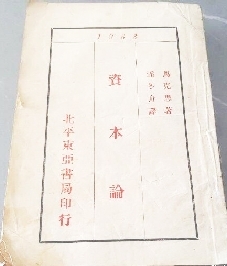 1932
馬克思著
潘冬舟譯
資本論
北平東亞書局印行